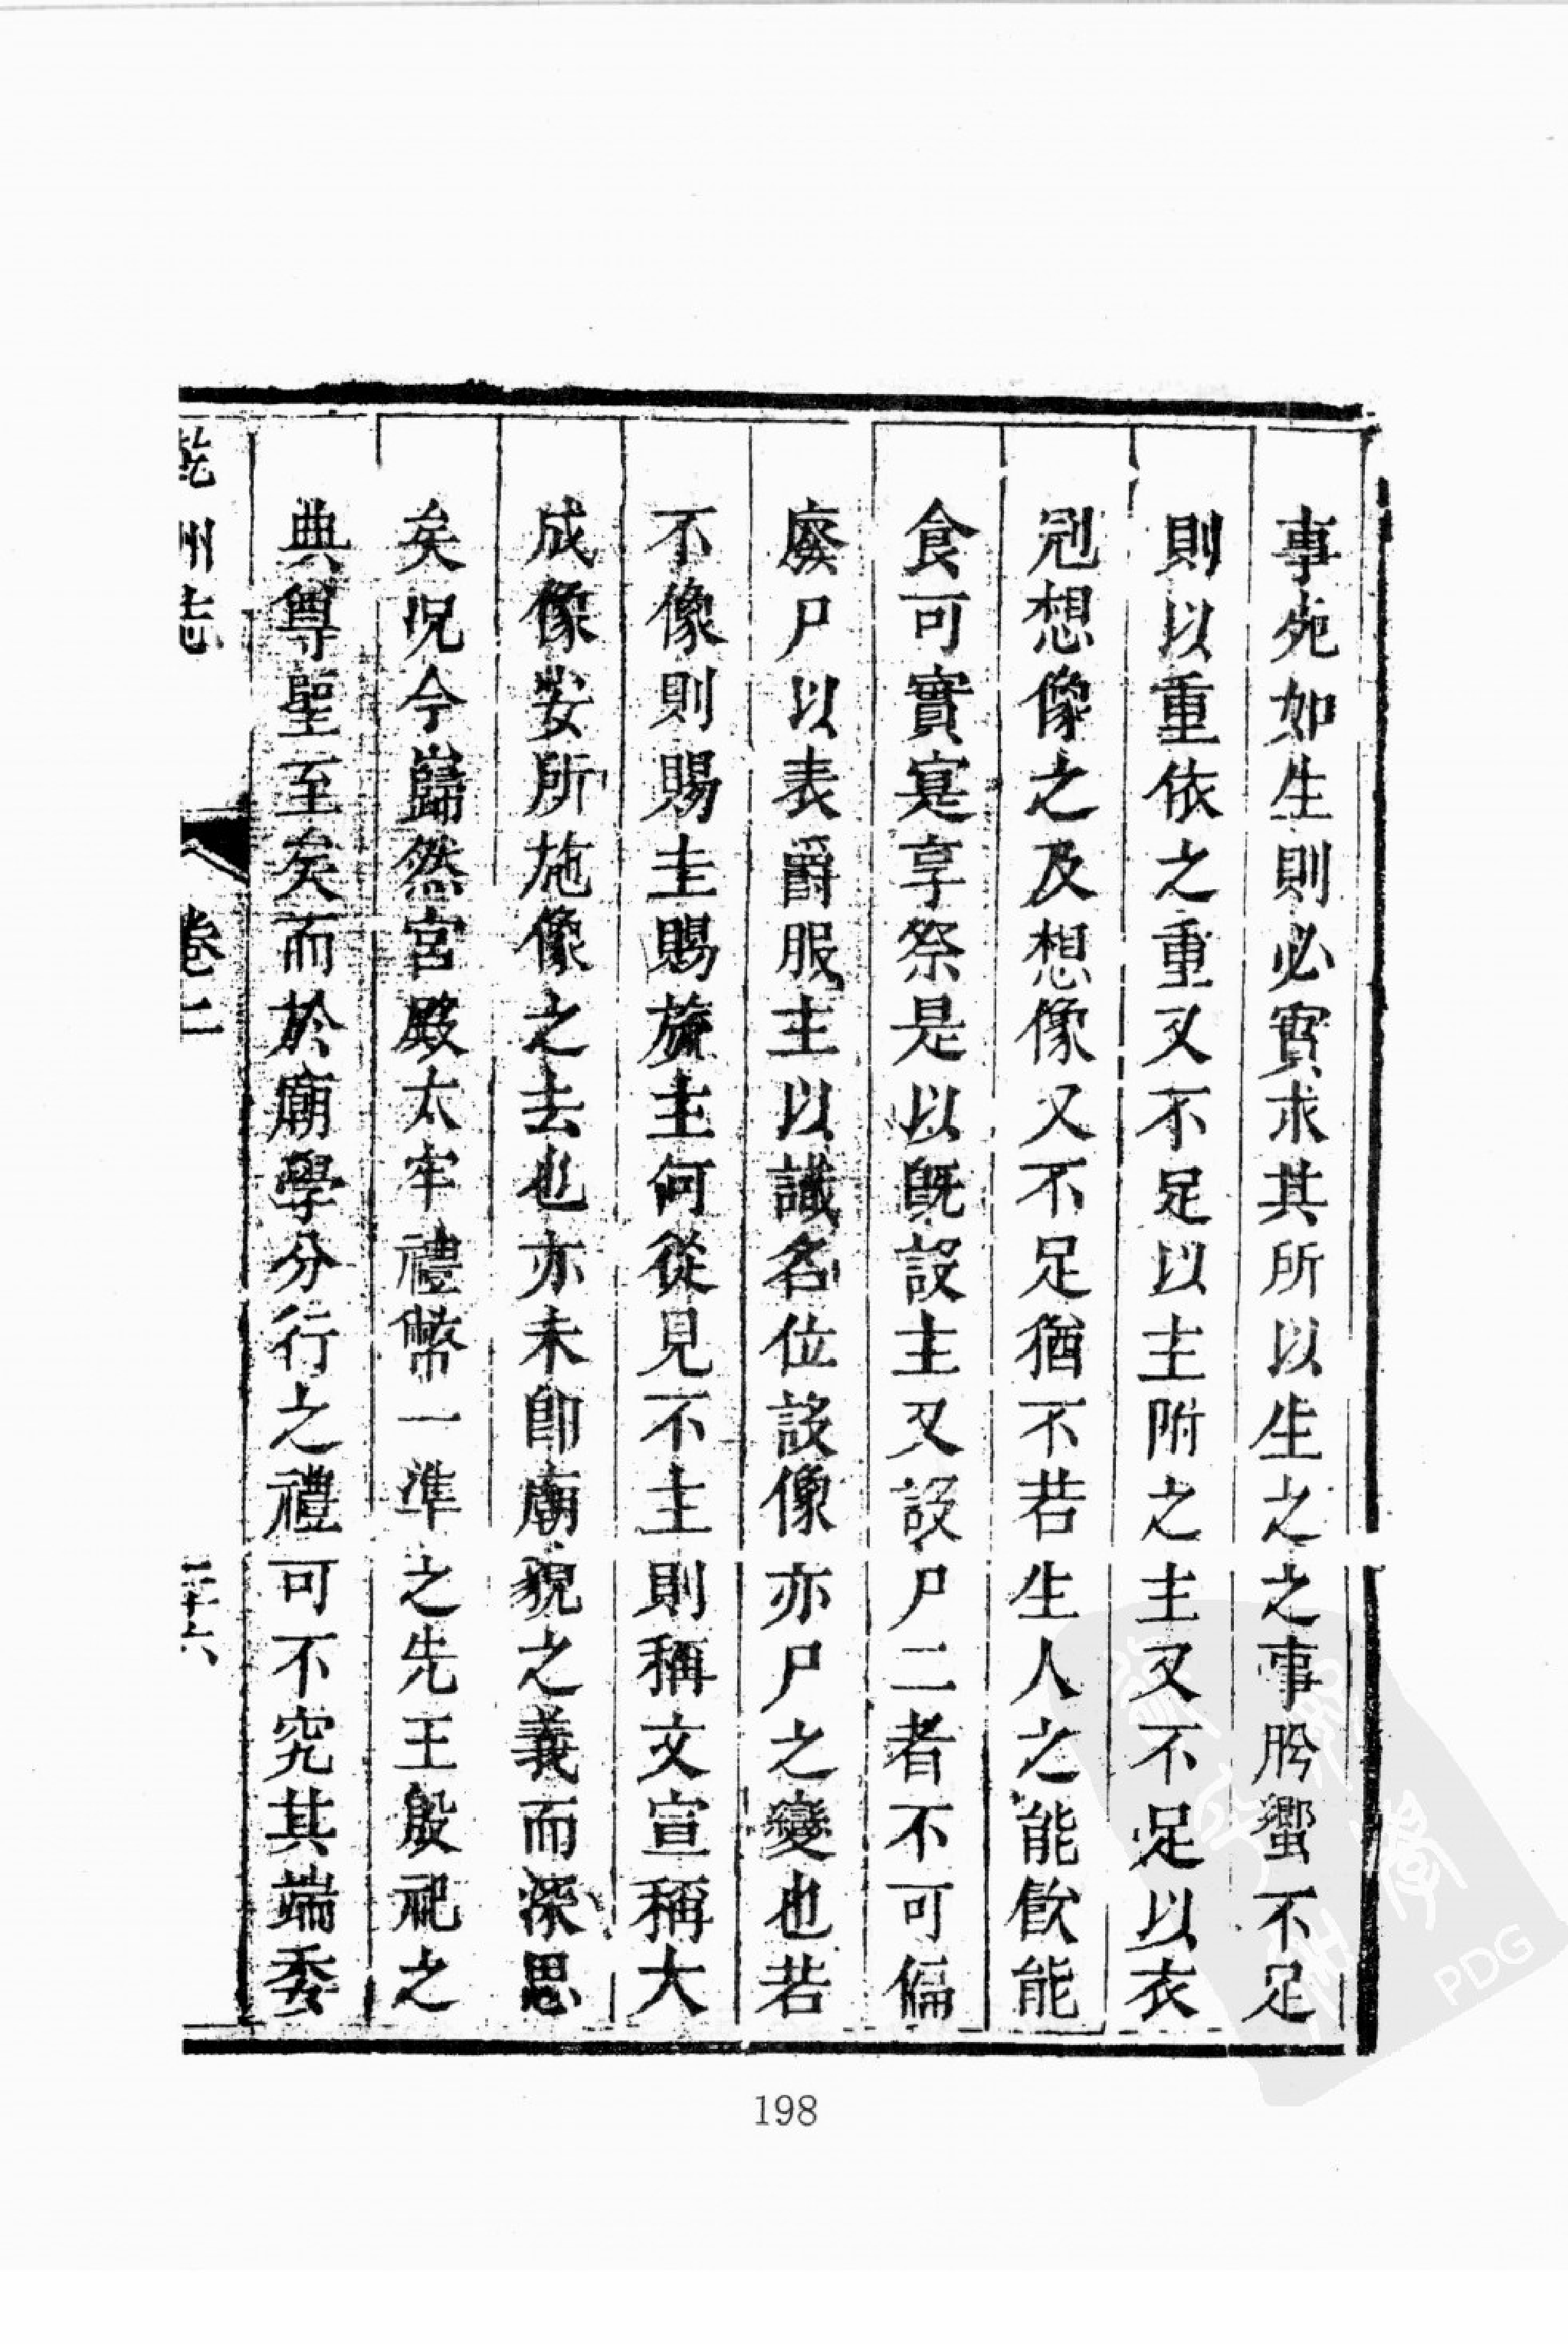 事死如生則必實求其所以生之之事肹蠁不足
則以重依之重又不足以主附之主又不足以衣
冠想像之及想像又不足猶不若生人之能飲能
食可實寔享祭是以旣設主又設尸二者不可偏
廢尸以表爵服主以識名位設像亦尸之變也若
不像則賜圭賜旒圭何從見不主則稱文宣稱大
成像安所施像之去也亦未卽廟貌之義而深思
矣况今巋然宮殿太牢禮幣一準之先王殷祀之
典尊聖至矣而於廟學分行之禮可不究其端委
乾州志
卷二
二十六
198
PDG